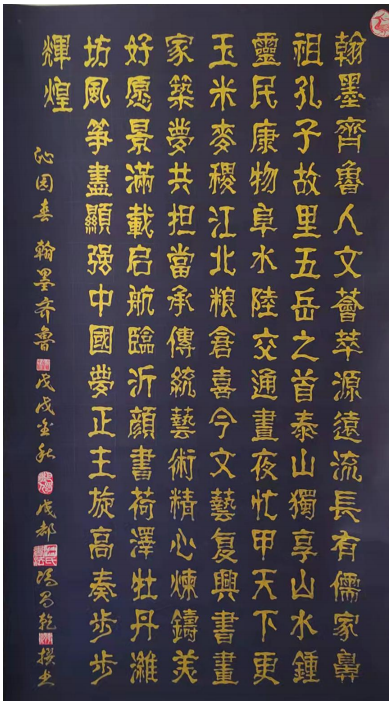 翰墨齊魯人文薈萃源遠流長有儒家鼻
祖孔子故里五岳之首泰山獨享山水鍾
靈民康物阜水陸交通晝夜忙甲天下更
玉米麥稷江北粮倉喜今文藝复興書畫
家築夢共担當承傳統藝術精心煉鑄美
好愿景滿載启航臨沂顔書荷澤牡丹濰
坊風筝盡顯强中國夢正主旋高奏步步
輝煌
沁园春 翰墨齐鲁 戊戌金秋 成都 冯昌乾 撰书